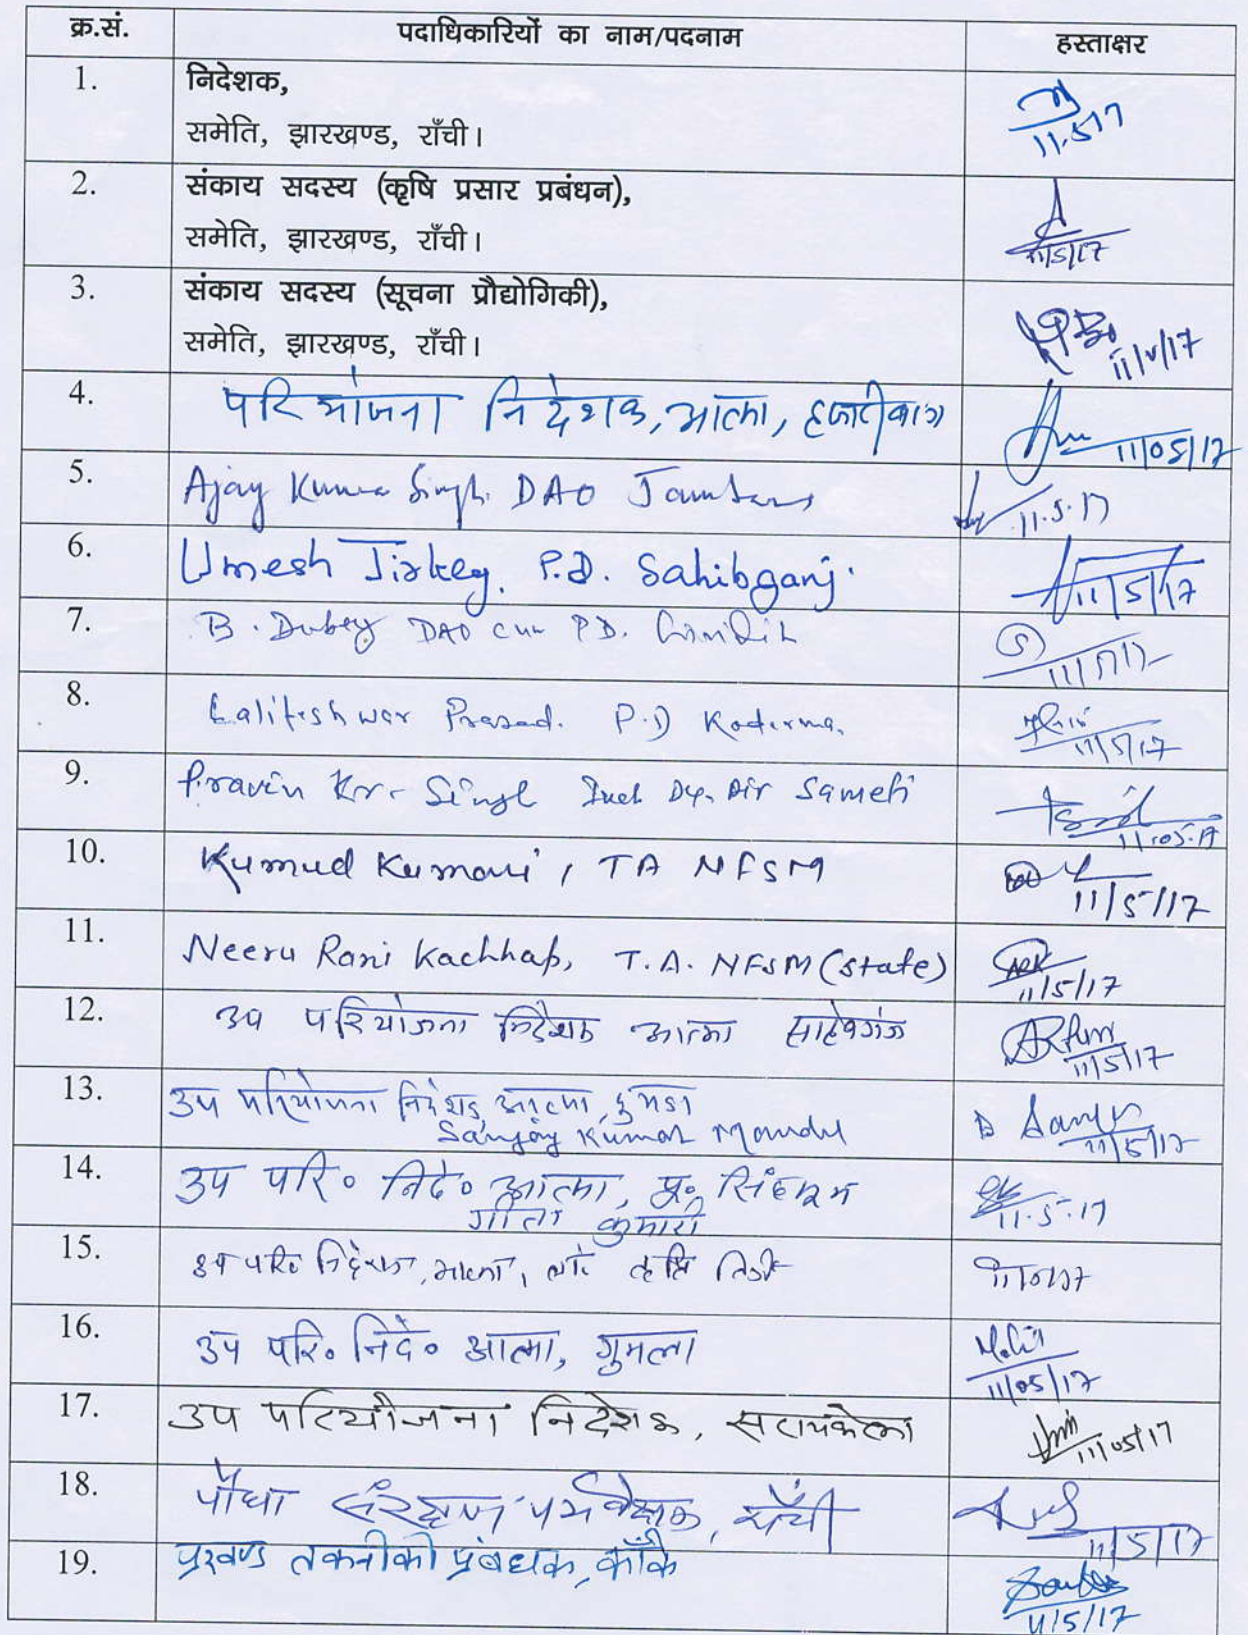 क्र.सं. पदाधिकारियों का नाम/पदनाम हस्ताक्षर
1. निदेशक,
समेति, झारखण्ड, राँची।
11.5.17
2. संकाय सदस्य (कृषि प्रसार प्रबंधन),
समेति, झारखण्ड, राँची।
11/5/17
3. संकाय सदस्य (सूचना प्रौद्योगिकी),
समेति, झारखण्ड, राँची।
11/5/17
4. परियोजना निदेशक, आत्मा, हजारीबाग
11/05/17
5. Ajay Kumar Singh. DAO Jamtara
11.5.17
6. Umesh Tirkey. P.D. Sahibganj.
11/5/17
7. B. Dubey DAO cum P.D.
11/5/17
8. Laliteshwar Prasad. P.D Koderma.
11/5/17
9. Pravin Kr. Singh Dy. Dir Sameti
11.05.17
10. Kumud Kumari, TA NFSM
11/5/17
11. Neeru Rani Kachhap, T.A. NFSM (state)
11/5/17
12. उप परियोजना निदेशक आत्मा साहेबगंज
11/5/17
13. उप परियोजना निदेशक, आत्मा, दुमका
Sanjay Kumar Mandal
11/5/17
14. उप परि॰ निदे॰ आत्मा, पू॰ सिंहभूम
गीता कुमारी
11.5.17
15. उप परि॰ निदेशक, आत्मा,
16. उप परि॰ निदे॰ आत्मा, गुमला
11/05/17
17. उप परियोजना निदेशक, सरायकेला
11/05/17
18. पौधा संरक्षण पर्यवेक्षक, राँची
11/5/17
19. प्रखण्ड तकनीकी प्रबंधक, काँके
11/5/17